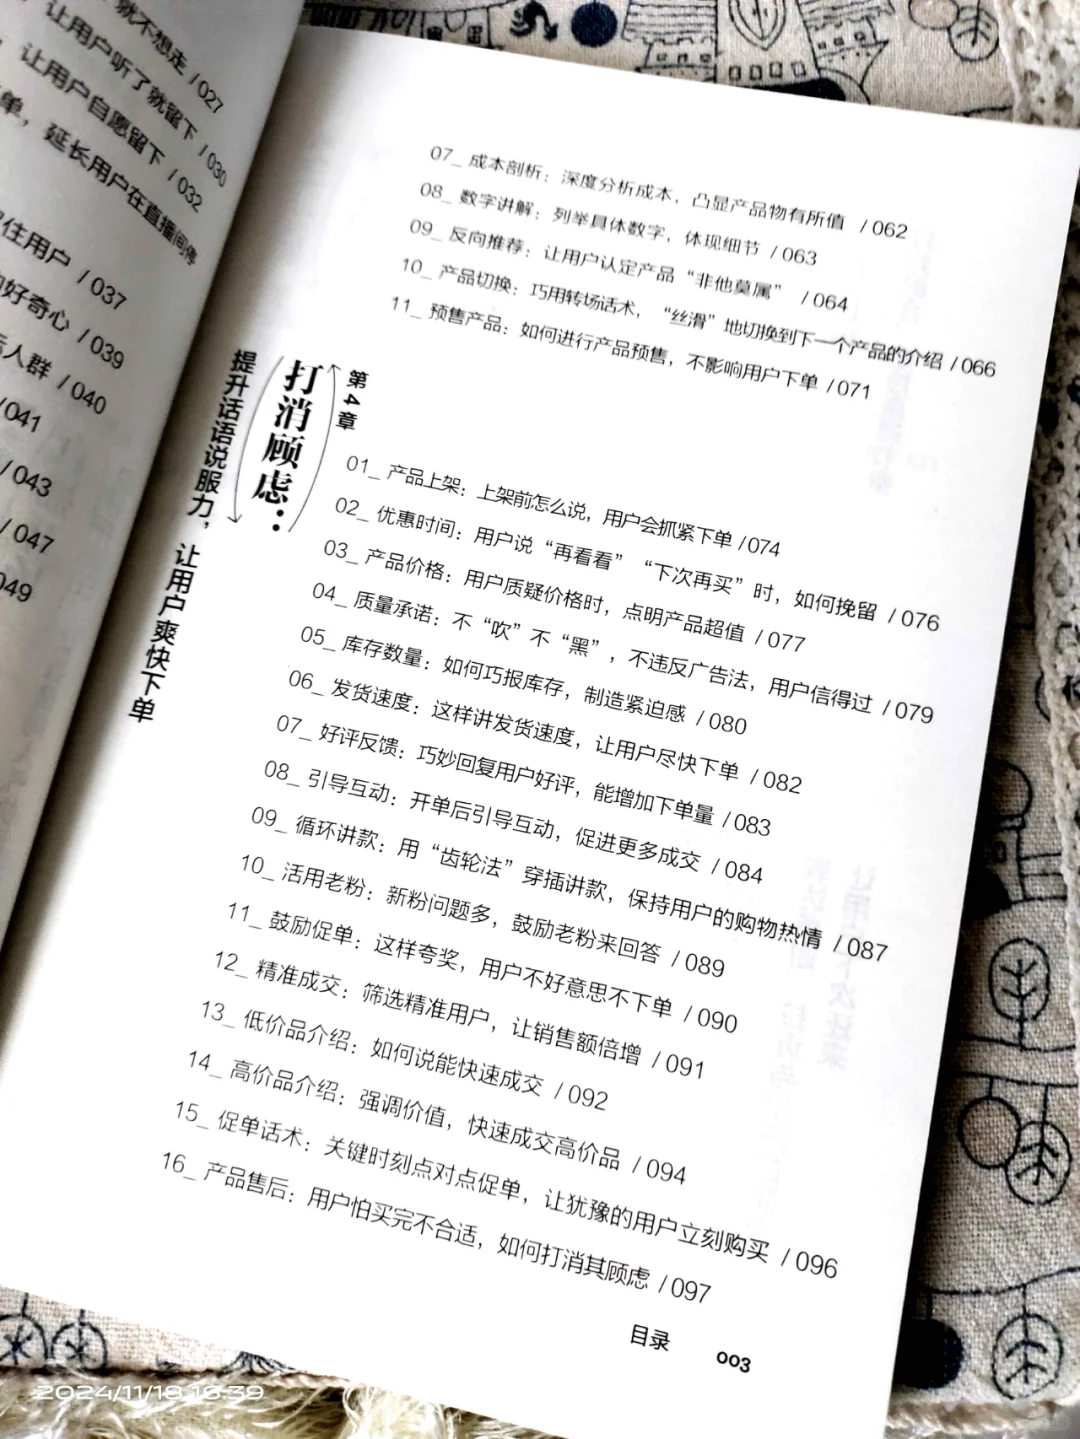 就不想走 /027
让用户听了就留下 /030
让用户自愿留下 /032
单，延长用户在直播间停
住用户 /037
好奇心 /039
人群 /040
/041
/043
/047
049
07_ 成本剖析：深度分析成本，凸显产品物有所值 /062
08_ 数字讲解：列举具体数字，体现细节 /063
09_ 反向推荐：让用户认定产品“非他莫属” /064
10_ 产品切换：巧用转场话术，“丝滑”地切换到下一个产品的介绍 /066
11_ 预售产品：如何进行产品预售，不影响用户下单 /071
第4章
打消顾虑：
提升话语说服力，让用户爽快下单
01_ 产品上架：上架前怎么说，用户会抓紧下单 /074
02_ 优惠时间：用户说“再看看”“下次再买”时，如何挽留 /076
03_ 产品价格：用户质疑价格时，点明产品超值 /077
04_ 质量承诺：不“吹”不“黑”，不违反广告法，用户信得过 /079
05_ 库存数量：如何巧报库存，制造紧迫感 /080
06_ 发货速度：这样讲发货速度，让用户尽快下单 /082
07_ 好评反馈：巧妙回复用户好评，能增加下单量 /083
08_ 引导互动：开单后引导互动，促进更多成交 /084
09_ 循环讲款：用“齿轮法”穿插讲款，保持用户的购物热情 /087
10_ 活用老粉：新粉问题多，鼓励老粉来回答 /089
11_ 鼓励促单：这样夸奖，用户不好意思不下单 /090
12_ 精准成交：筛选精准用户，让销售额倍增 /091
13_ 低价品介绍：如何说能快速成交 /092
14_ 高价品介绍：强调价值，快速成交高价品 /094
15_ 促单话术：关键时刻点对点促单，让犹豫的用户立刻购买 /096
16_ 产品售后：用户怕买完不合适，如何打消其顾虑 /097
目录 003
2024/11/18 16:39